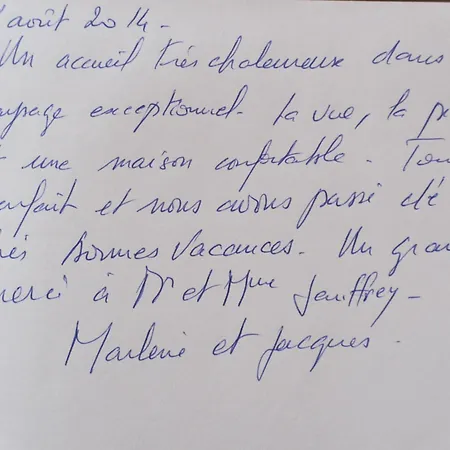 août 2014-
Un accueil très chaleureux dans
exceptionnel. La vue, la
une maison confortable. Tou
parfait et nous avons passé de
Bonnes Vacances. Un gran
merci à Mr et Mme Jauffrey-
Marlène et Jacques.